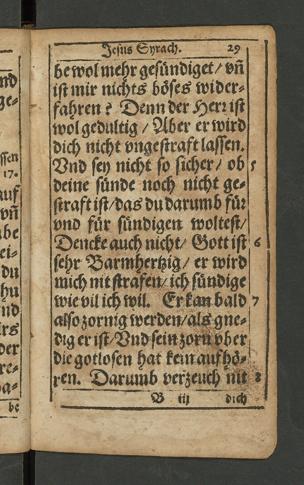 Jesus Syrach. 29
be wol mehr gesündiget / vñ
ist mir nichts böses wider-
fahren? Denn der Herr ist
wol gedultig / Aber er wird
dich nicht vngestraft lassen.
Vnd sey nicht so sicher / ob 5
deine sünde noch nicht ge-
straft ist / das du darumb für
vnd für sündigen woltest /
Dencke auch nicht / Gott ist 6
sehr Barmhertzig / er wird
mich nit strafen / ich sündige
wie vil ich wil. Er kan bald 7
also zornig werden / als gne-
dig er ist / Vnd sein zorn vber
die gotlosen hat kein aufhö-
ren. Darumb verzeuch nit 8
B iij dich
nd
ge-
ssen
17.
auf
vñ
abe
ei-
du
hn
nd
irs
der
re-
ha-
be